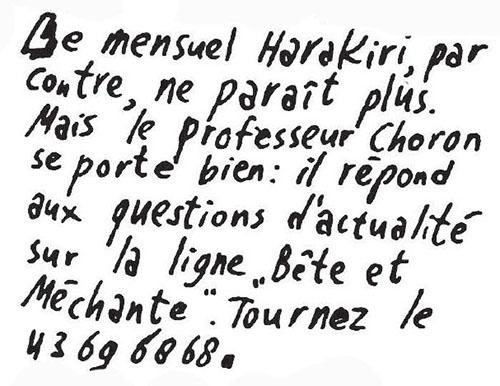 Le mensuel HaraKiri, par
contre, ne paraît plus.
Mais le professeur Choron
se porte bien: il répond
aux questions d'actualité
sur la ligne „Bête et
Méchante". Tournez le
43 69 68 68.